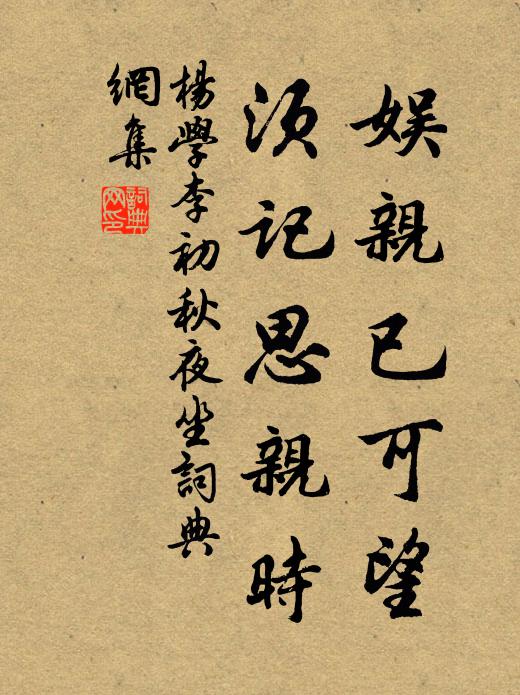 娱親已可望
須記思親時
楊學李初秋夜坐詞典
網集
詞典
网印